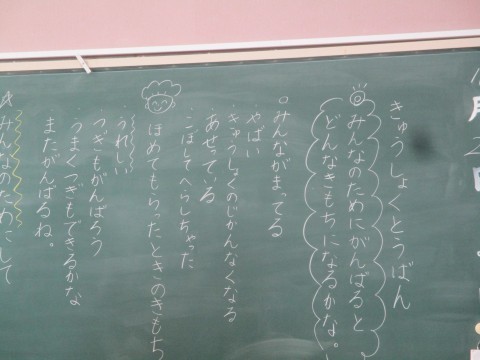 月2日
きゅうしょくとうばん
◎みんなのためにがんばると
どんなきもちになるかな。
○みんながまってる
・やばい
・きゅうしょくのじかんなくなる
・あせっている
・こぼしてへらしちゃった
ほめてもらったときのきもち
・うれしい
・つぎもがんばろう
・うまくつぎもできるかな
・またがんばるね。
みんなのためにして